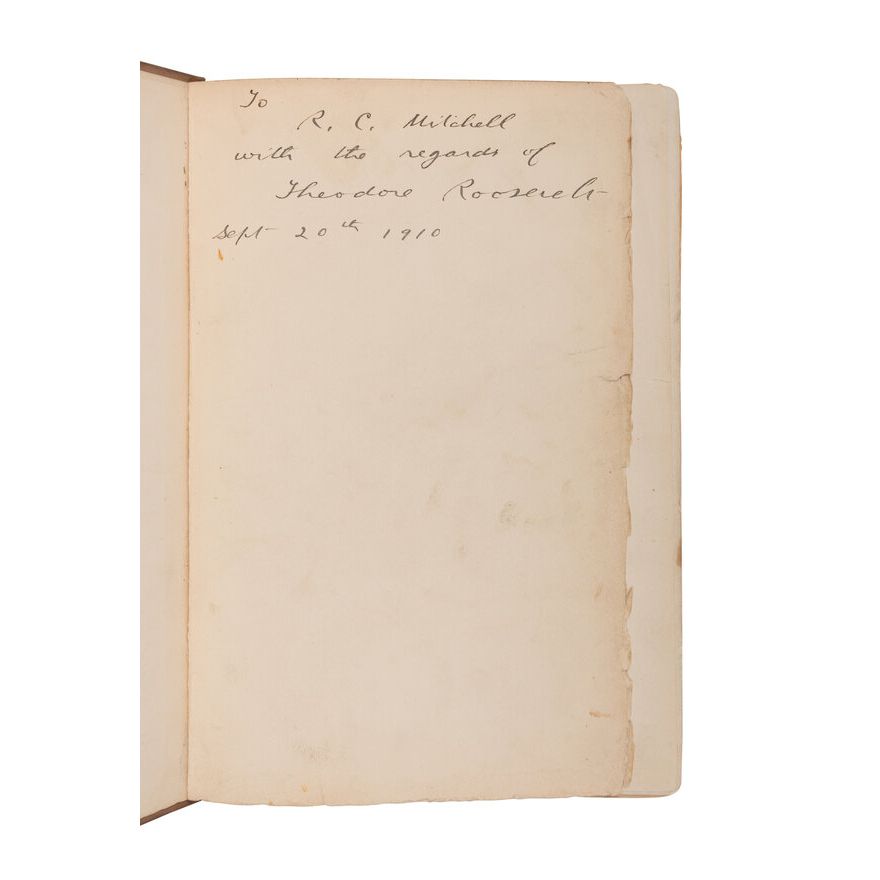 To
R. C. Mitchell
with the regards of
Theodore Roosevelt
Sept 20th 1910